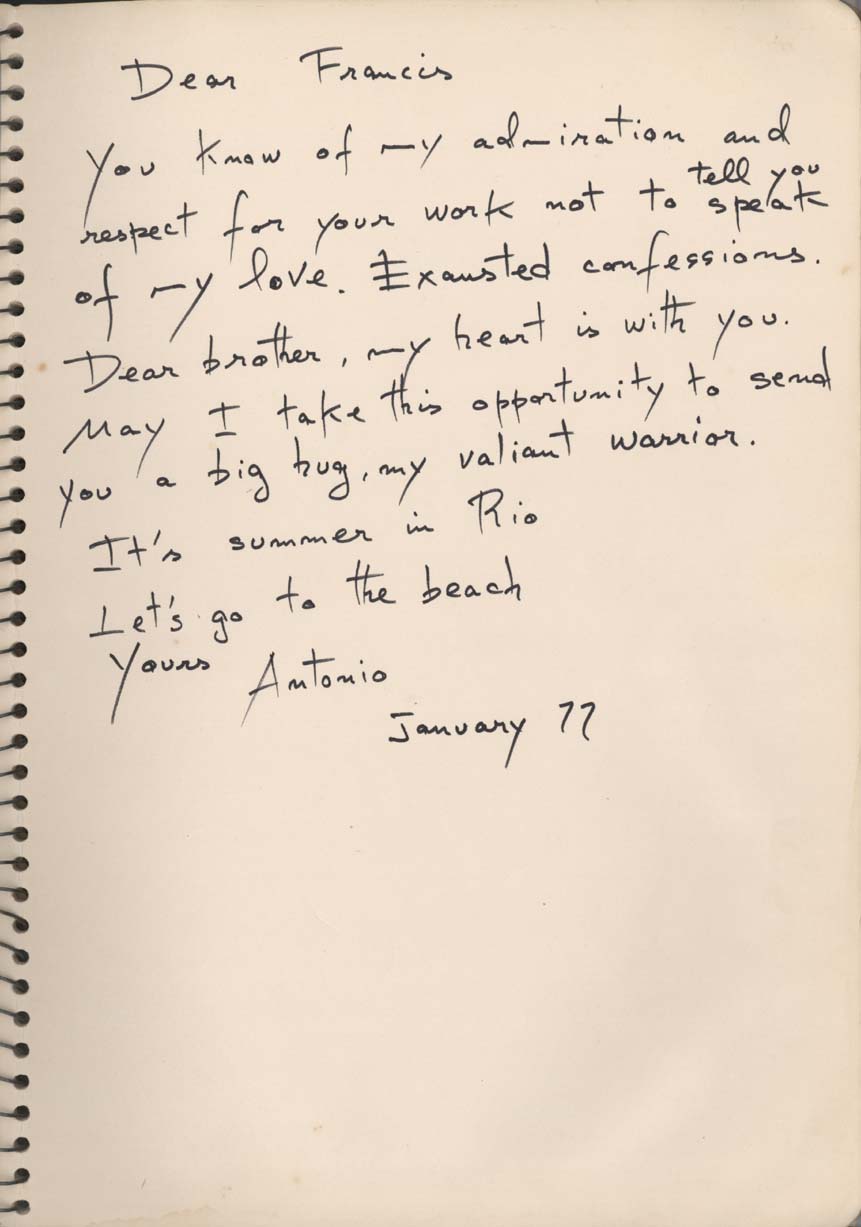 Dear Francis
You know of my admiration and
respect for your work not to speak
tell you
of my love. Exausted confessions.
Dear brother, my heart is with you.
May I take this opportunity to send
you a big hug, my valiant warrior.
It's summer in Rio
Let's go to the beach
Yours Antonio
January 77